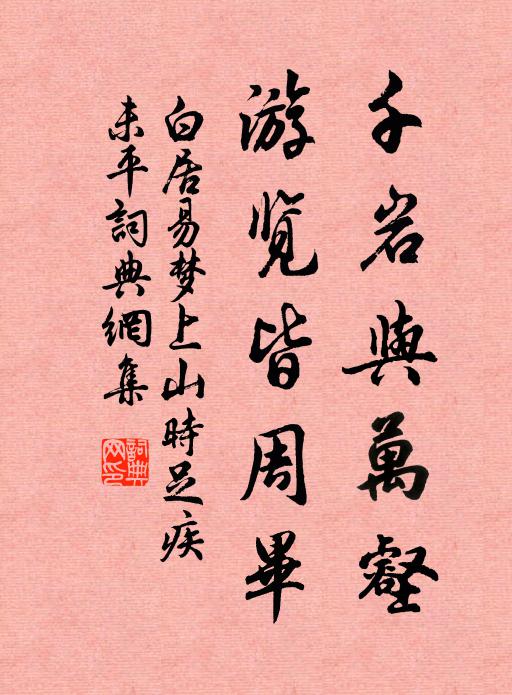 千岩與萬壑
游览皆周畢
白居易梦上山時足疾
未平詞典網集
詞典
网印